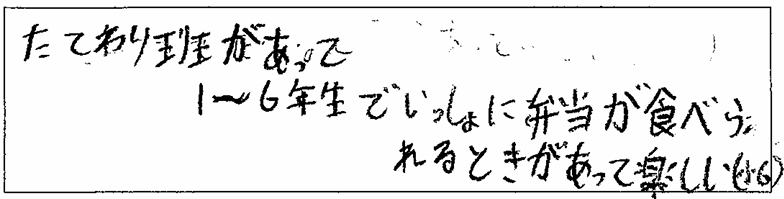 たてわり班があって
1〜6年生でいっしょに弁当が食べら
れるときがあって楽しい(小6)